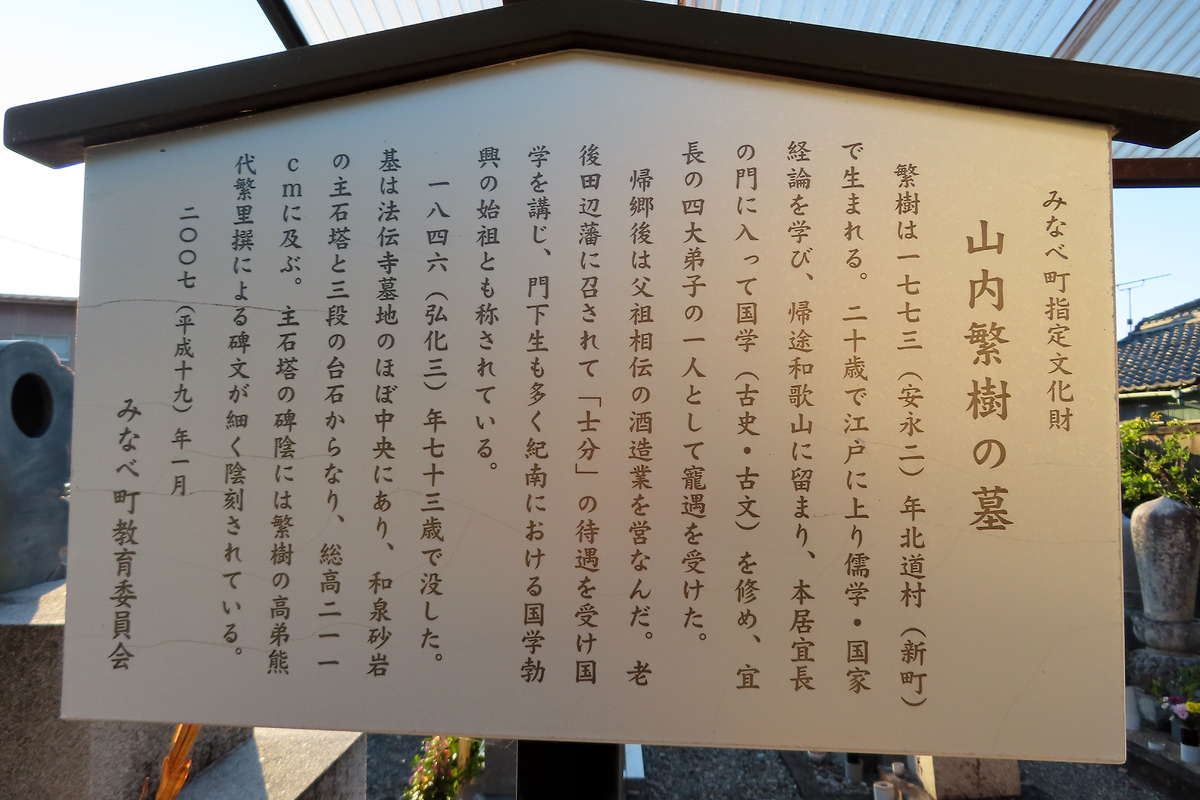 みなべ町指定文化財
山内繁樹の墓
繁樹は一七七三（安永二）年北道村（新町）
で生まれる。二十歳で江戸に上り儒学・国家
経論を学び、帰途和歌山に留まり、本居宜長
の門に入って国学（古史・古文）を修め、宜
長の四大弟子の一人として寵遇を受けた。
帰郷後は父祖相伝の酒造業を営なんだ。老
後田辺藩に召されて「士分」の待遇を受け国
学を講じ、門下生も多く紀南における国学勃
興の始祖とも称されている。
一八四六（弘化三）年七十三歳で没した。
基は法伝寺墓地のほぼ中央にあり、和泉砂岩
の主石塔と三段の台石からなり、総高二一一
cmに及ぶ。主石塔の碑陰には繁樹の高弟熊
代繁里撰による碑文が細く陰刻されている。
二〇〇七（平成十九）年一月
みなべ町教育委員会